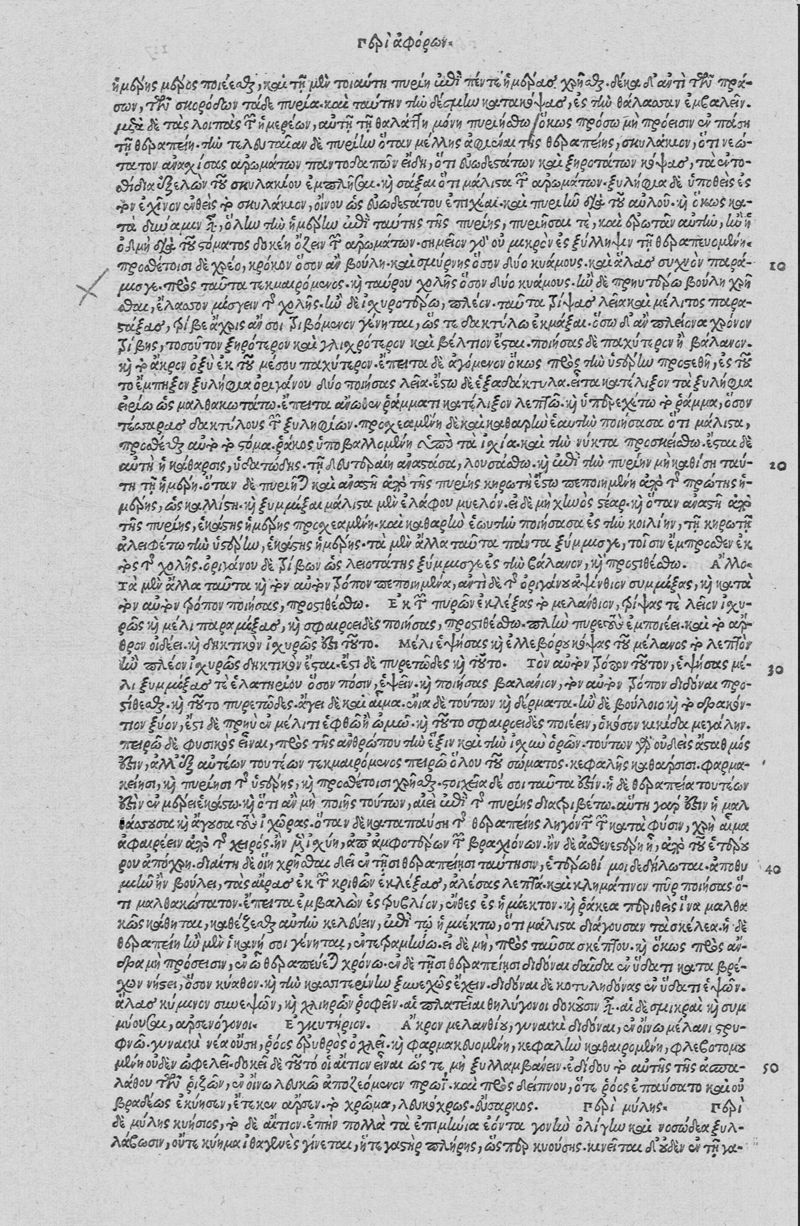 Περὶ ἀφόρων.
ἡμέρης μέρος ποιέεσθαι, καὶ τῇ μὲν τοιαύτῃ πυρίῃ ἐπὶ πέντε ἡμέρας χρῆσθαι. δέκα δ' ἀντὶ τῶν πρά-
σων, τῶν σκορόδων τάδε πυρία. καὶ ταύτην τὴν δέσμην κατακόψας, ἐς τὴν θάλασσαν ἐμβαλεῖν.
μετὰ δὲ τὰς λοιπὰς τῶν ἡμερέων, αὐτῇ τῇ θαλάσσῃ μόνῃ πυριήσθω, ὅκως πρόσω μὴ πρόεισιν ἐν πάσῃ
τῇ θεραπείῃ. τὴν τελευταίαν δὲ πυρίην ὅταν μέλλῃς ἀφιέναι τῆς θεραπείης, σκυλάκιον, ὅτι νεώ-
τατον ἀνασχίσας ἀρωμάτων παντοδαπῶν εἴδη, ὅτι εὐωδεστάτων καὶ ξηροτάτων κόψας, τὰ ἐντο-
σθίδια ἐξελὼν τοῦ σκυλακίου ἐμπλῆσαι. καὶ σάξαι ὅτι μάλιστα τῶν ἀρωμάτων. ξυλήφια δὲ ὑποθεὶς ἐς
τὸν ἐχῖνον ἐνθεῖς τὸ σκυλάκιον, οἴνου ὡς εὐωδεστάτου ἐπιχέαι. καὶ πυριῆν διὰ τοῦ αὐλοῦ. καὶ ὅκως κα-
τὰ δύναμιν ᾖ, ὅλην τὴν ἡμέρην ἐπὶ ταύτης τῆς πυρίης, πυριῆσαί τε, καὶ ἐρωτᾶν αὐτὴν, ἢν ἡ
ὀδμὴ διὰ τοῦ στόματος δοκέῃ ὄζειν τῶν ἀρωμάτων. σημεῖον γὰρ οὐ μικρὸν ἐς ξύλληψιν τῇ θεραπευομένῃ.
προσθέτοισι δὲ χρέο, κρόκον ὅσον ἂν βούλῃ. καὶ σμύρνης ὅσον δύο κυάμους. καὶ ἅλας συχνὸν παρά- 10
μισγε. πρὸς ταῦτα τεκμαιρόμενος. καὶ ταύρου χολῆς ὅσον δύο κυάμους. ἢν δὲ πρηϋτέρῳ βούλῃ χρῆ
σθαι, ἔλασσον μίσγειν τῆς χολῆς. ἢν δὲ ἰσχυροτέρῳ, πλέον. ταῦτα τρίψας λεῖα καὶ μέλιτος παρα-
στάξας, τρίβε ἄχρις ἄν σοι τριβόμενον γένηται, ὥς τε δακτύλῳ ἐκμάξαι. ὅσῳ δ' ἂν πλείονα χρόνον
τρίβῃς, τοσοῦτον ξηρότερον καὶ γλισχρότερον καὶ βέλτιον ἔσται. ποιήσας δὲ παχύτερον ἢ βάλανον.
καὶ τὸ ἄκρον ὀξὺ ἐκ τοῦ μέσου παχύτερον. ἔπειτα δὲ ἀγόμενον ὅκως πρὸς τὴν ὑστέρην προστεθῇ, ἐς τοῦ
το ἔμπηξον ξυλήφια ὀριγάνου δύο ποιήσας λεῖα. ἔστω δὲ ἑξαδάκτυλα. εἶτα κατέλιξον τὰ ξυλήφια
εἰρίῳ ὡς μαλθακωτάτῳ. ἔπειτα ἄνωθεν ῥάμματι κατέλιξον λεπτῷ. καὶ ὑπερεχέτω τὸ ῥάμμα, ὅσον
τέσσαρας δακτύλους τῶν ξυληφίων. προχεαμένη δὲ καὶ καθαρὴν ἑαυτὴν ποιήσασα ὅτι μάλιστα,
προσθέσθαι αὐτὸ τὸ στόμα. ῥάκος ὑποβαλλομένη ὑπὸ τὰ ἰσχία. καὶ τὴν νύκτα προσκείσθω. ἔσται δὲ
αὐτῇ ἡ κάθαρσις, ὑδατώδης. τῇ δευτεραίῃ ἀναστᾶσα, λουσάσθω. καὶ ἐπὶ τὴν πυρίην μὴ καθίσῃ ταύ- 20
τῃ τῇ ἡμέρῃ. ὅταν δὲ πυριηθῇ καὶ ἀναστῇ ἀπὸ τῆς πυρίης κηρωτὴ ἔστω πεποιημένη ἀπὸ τῆς πρώτης ἡ-
μέρης, ὡς καλλίστη. καὶ ξυμμίξαι μάλιστα μὲν ἐλάφου μυελόν. εἰ δὲ μὴ χηνὸς στέαρ. καὶ ὅταν ἀναστῇ ἀπὸ
τῆς πυρίης, ἑκάστης ἡμέρης προχεαμένη. καὶ καθαρὴν ἑωυτὴν ποιήσασα ἐς τὴν κοιλίην, τῇ κηρωτῇ
ἀλειφέτω τὴν ὑστέρην, ἑκάστης ἡμέρης. τὰ μὲν ἄλλα ταῦτα πάντα ξύμμισγε, τοῖσιν ἔμπροσθεν ἐκ
τὸς τῆς χολῆς. ὀριγάνου δὲ τρίβων ὡς λειοτάτης ξύμμισγε ἐς τὴν βάλανον, καὶ προστιθέσθω. Ἄλλο.
Τὰ μὲν ἄλλα ταῦτα καὶ τὸν αὐτὸν τρόπον πεποιημένα, ἀντὶ δὲ τῆς ὀριγάνου ἀψίνθιον συμμίξας, καὶ κατὰ
τὸν αὐτὸν τρόπον ποιήσας, προστιθέσθω. Ἐκ τῶν πυρῶν ἐκλέξας τὸ μελάνθιον, τρίψας τε λεῖον ἰσχυ-
ρῶς καὶ μέλι παραμίξας, καὶ σφαιροειδὲς ποιήσας, προστιθέσθω. πλὴν πυρετὸν ἐμποιέει. καὶ τὸ ἄρ-
θρον οἰδέει. καὶ δηκτικὸν ἰσχυρῶς ἐστὶ τοῦτο. Μέλι ἑψήσας καὶ ἐλλεβόρου κόψας τοῦ μέλανος τὸ λεπτὸν
ἢν πλέον ἰσχυρῶς δηκτικὸν ἔσται. ἔστι δὲ πυρετῶδες καὶ τοῦτο. Τὸν αὐτὸν τρόπον τοῦτον, ἑψήσας μέ- 30
λι ξυμμίξας τε ἐλατηρίου ὅσον πόσιν, ἕψειν. καὶ ποιήσας βαλάνιον, τὸν αὐτὸν τρόπον διδόναι προσ-
τίθεσθαι. καὶ τοῦτο πυρετῶδες. ἄγει δὲ καὶ αἷμα. ἔνια δὲ τούτων καὶ δέρματα. ἢν δὲ βούλοιο καὶ τὸ σφακόν-
τιον ξύον, ἔστι δὲ πρηῢ ἐν μέλιτι ἑφθῷ ἢ ὠμῷ. καὶ τοῦτο σφαιροειδὲς ποιέειν, ὁκόσον κικίδα μεγάλην.
πειρῶ δὲ φυσικὸς εἶναι, πρὸς τῆς ἀνθρώπου τὴν ἕξιν καὶ τὴν ἰσχὺν ὁρῶν. τούτων γὰρ οὐδεὶς σταθμός
ἐστιν, ἀλλ' ἐξ αὐτέων τουτέων τεκμαιρόμενος πειρῶ ὅλου τοῦ σώματος. κεφαλῆς καθάρσισι. φαρμα-
κείῃσι, καὶ πυρίῃσι τῆς ὑστέρης, καὶ προσθέτοισι χρῆσθαι. στοιχεῖα δέ σοι ταῦτά ἐστιν. ἡ δὲ θεραπεία τουτέων
ἐστὶν ἐν μέρει ἑκάστῳ. καὶ ὅτι ἂν μὴ ποιῇς τούτων, αἰεὶ ἐπὶ τῆς πυρίης διατριβέτω. αὕτη γάρ ἐστιν ἡ μαλ
θάσσουσα καὶ ἄγουσα τοὺς ἰχῶρας. ὅταν δὲ καταπαύσῃ τῆς θεραπείης λῆγον τῶν κατὰ φύσιν, χρὴ αἷμα
ἀφαιρέειν ἀπὸ τῆς χειρός. ἢν μὲν ἰσχύῃ, ἀπ' ἀμφοτέρων τῶν βραχιόνων. ἢν δὲ ἀσθενεστέρη ᾖ, ἀπὸ τοῦ ἑτέρου
ρου ἀπόχρη. διαίτῃ δὲ οἵῃ χρῆσθαι δεῖ ἐν τῇσι θεραπείῃσι ταύτῃσιν, ἑτέρωθί μοι δεδήλωται. ἀποθυ 40
μιῆν ἢν βούλει, τὰς αἴρας ἐκ τῶν κριθῶν ἐκλέξας, ἀλέσας λεπτά. καὶ κλημάτινον πῦρ ποιήσας ὅ-
τι μαλθακώτατον. ἔπειτα ἐμβαλὼν ἐς τρυβλίον, ἔνθες ἐς ἡμίεκτον. καὶ ῥάκεα περιθεὶς ἵνα μαλθα
κῶς κάθηται, καθέζεσθαι αὐτὴν κελεύειν, ἐπὶ τῷ ἡμιέκτῳ, ὅτι μάλιστα διάγουσαν τὰ σκέλεα. ἡ δὲ
θεραπείη ἢν μὲν ἱκανή σοι γένηται, ἐν τεραμίῳ. εἰ δὲ μὴ, πρὸς ταῦτα σκέπτου. καὶ ὅκως πρὸς ἄν-
δρα μὴ πρόσεισιν, ἐν ᾧ θεραπεύεται χρόνῳ. ἐν δὲ τῇσι θεραπείῃσι διδόναι δαῦκα ἐν ὕδατι κατὰ βρέ-
χων νήστει, ὅσον κύαθον. καὶ τὴν κοσπερίην ξυνεχῶς ἔχειν. διδόναι δὲ κοτυληδόνας ἐν ὕδατι ἑψῶν.
ἅλας κύμινον συνεψῶν, καὶ χλιηρῶν ῥοφεῖν. αἱ πλατεῖαι θηλύγονοι δοκοῦσιν εἶναι. αἱ δὲ σμικραὶ καὶ συμ
μύουσαι, ἀρσενόγονοι. Ἐγκυτήριον. Ἄκρον μελανθίου, γυναικὶ διδόναι, ἐν οἴνῳ μέλανι στρυ-
φνῷ. γυναικὶ νέᾳ οὔσῃ, ῥόος ἐρυθρὸς ὀχλεῖ. καὶ φαρμακευομένη, κεφαλὴν καθαιρομένη, φλεβοτομου
μένη οὐδὲν ὠφελεῖ. δοκεῖ δὲ τοῦτό οἱ αἴτιον εἶναι ὥς τε μὴ ξυλλαμβάνειν. ἐδίδου τὸ αὐτῆς τῆς ἀσπα- 50
λάθου τῶν ῥιζῶν, ἐν οἴνῳ λευκῷ ἀποζεόμενον πρωΐ. καὶ πρὸς δεῖπνον, ὅτε ῥόος ἐπαύσατο καὶ οὐ
βραδέως ἐκύησεν, ἔτεκεν ἄρσεν. τὸ χρῶμα, λευκόχρως. εὔσαρκος. Περὶ μύλης. Περὶ
δὲ μύλης κυήσιος, τὸ δὲ αἴτιον. ἐπὴν πολλὰ τὰ ἐπιμήνια ἐόντα γονὴν ὀλίγην καὶ νοσώδεα ξυλ-
λάβωσιν, οὔτε κύημα ἰθαγενὲς γίνεται, ἥ τε γαστὴρ πλήρης, ὥσπερ κυούσης. κινεῖται δ' οὐδὲν ἐν τῇ γα-